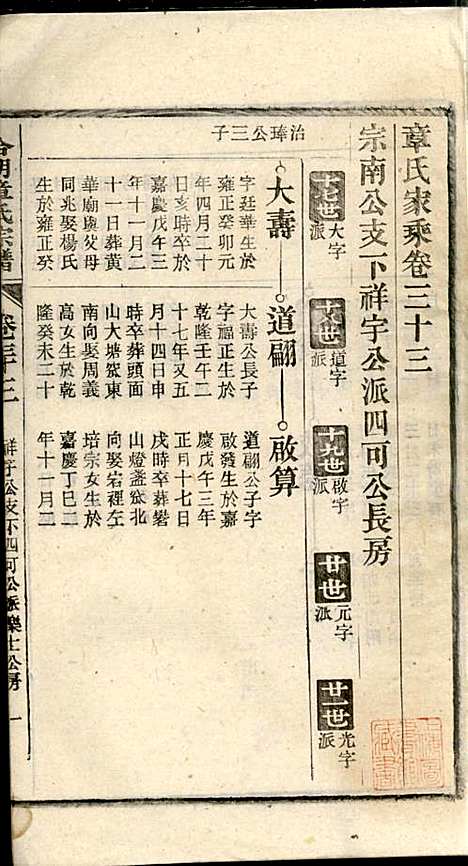 章氏家乘卷三十三
宗南公支下祥宇公派四可公長房
十七世 大字派
十八世 道字派
十九世 啟字派
廿世 元字派
廿一世 光字派
治琫公三子
大壽
道翮
啟算
字廷華生於
雍正癸卯元
年四月二十
日亥時卒於
嘉慶戊午三
年十一月二
十一日葬黃
華廟與父母
同兆娶楊氏
生於雍正癸
大壽公長子
字福正生於
乾隆壬午二
十七年又五
月十四日申
時卒葬頭面
山大塘窽東
南向娶周義
高女生於乾
隆癸未二十
道翮公子字
啟發生於嘉
慶戊午三年
正月十七日
戌時卒葬礬
山燈盞窽北
向娶宕裡左
培宗女生於
嘉慶丁巳二
年十一月二
章氏宗譜
卷三十三
祥宇公支下四可公派樂士公房
一